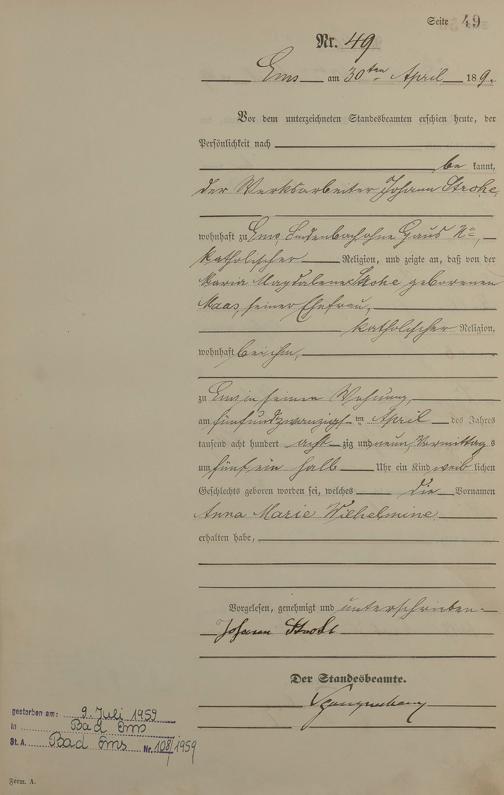 Seite 49
Nr. 49
Ems am 30ten April 189.
Vor dem unterzeichneten Standesbeamten erschien heute, der
Persönlichkeit nach
be kannt,
der Werksarbeiter Johann Strohe,
wohnhaft zu Ems, ohne Haus No
katholischer Religion, und zeigte an, daß von der
Maria Magdalena Strohe geborenen
Maas, seiner Ehefrau,
katholischer Religion,
wohnhaft bei ihm,
zu Ems in seiner Wohnung,
am fünfundzwanzigsten April des Jahres
tausend acht hundert acht zig und neun, Vormittags
um fünf ein halb Uhr ein Kind weib lichen
Geschlechts geboren worden sei, welches die Vornamen
Anna Marie Wilhelmine
erhalten habe,
Vorgelesen, genehmigt und unterschrieben
Johann
Der Standesbeamte.
gestorben am: 9. Juli 1959
in Bad Ems
St. A. Bad Ems Nr. 108/1959
Form. A.